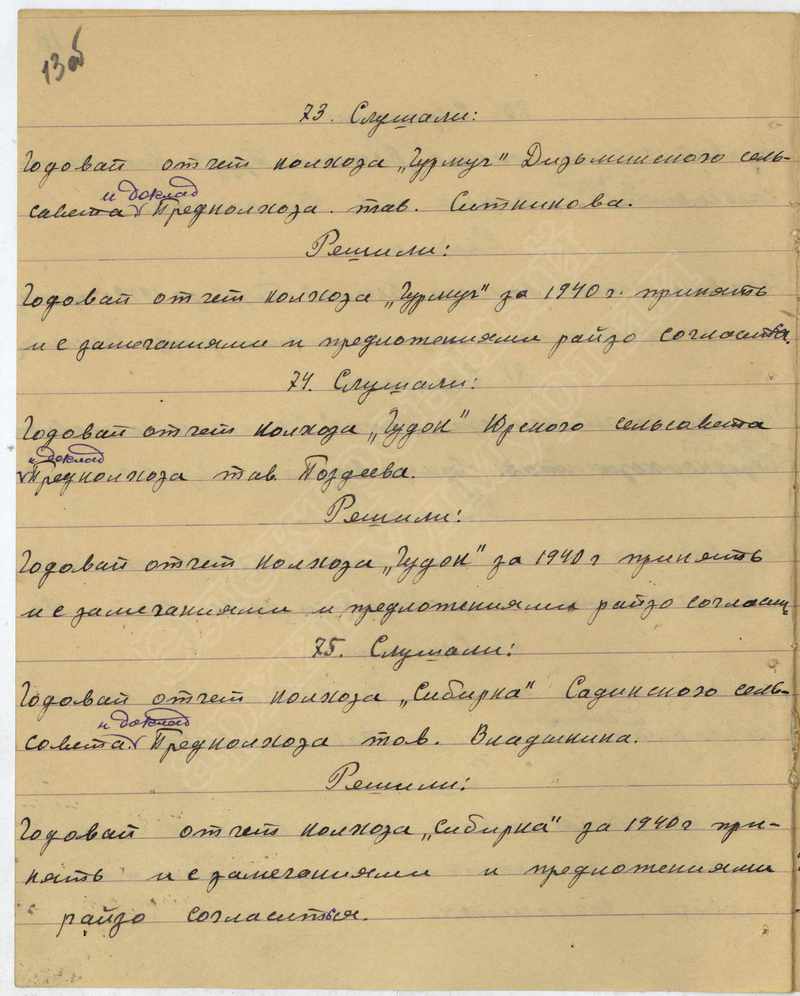 13 об
73. Слушали:
Годовай отчет колхоза „Гурмуч" Дизьминского сель-
и доклад
совета Предколхоза. тов. Ситникова.
Решили:
Годовай отчет колхоза „Гурмуч" за 1940 г. принять
и с замечаниями и предложениями райзо согласится.
74. Слушали:
Годовай отчет колхоза „Гудок" Юрского сельсовета
и доклад
Предколхоза тов. Поздеева.
Решили:
Годовай отчет колхоза „Гудок" за 1940 г принять
и с замечаниями и предложениями райзо соглас
75. Слушали:
Годовай отчет колхоза „Сибирка" Садинского сель-
и доклад
совета. Предколхоза тов. Владыкина.
Решили:
Годовай отчет колхоза „Сибирка" за 1940 г при-
нять и с замечаниями и предложениями
райзо согласиться.